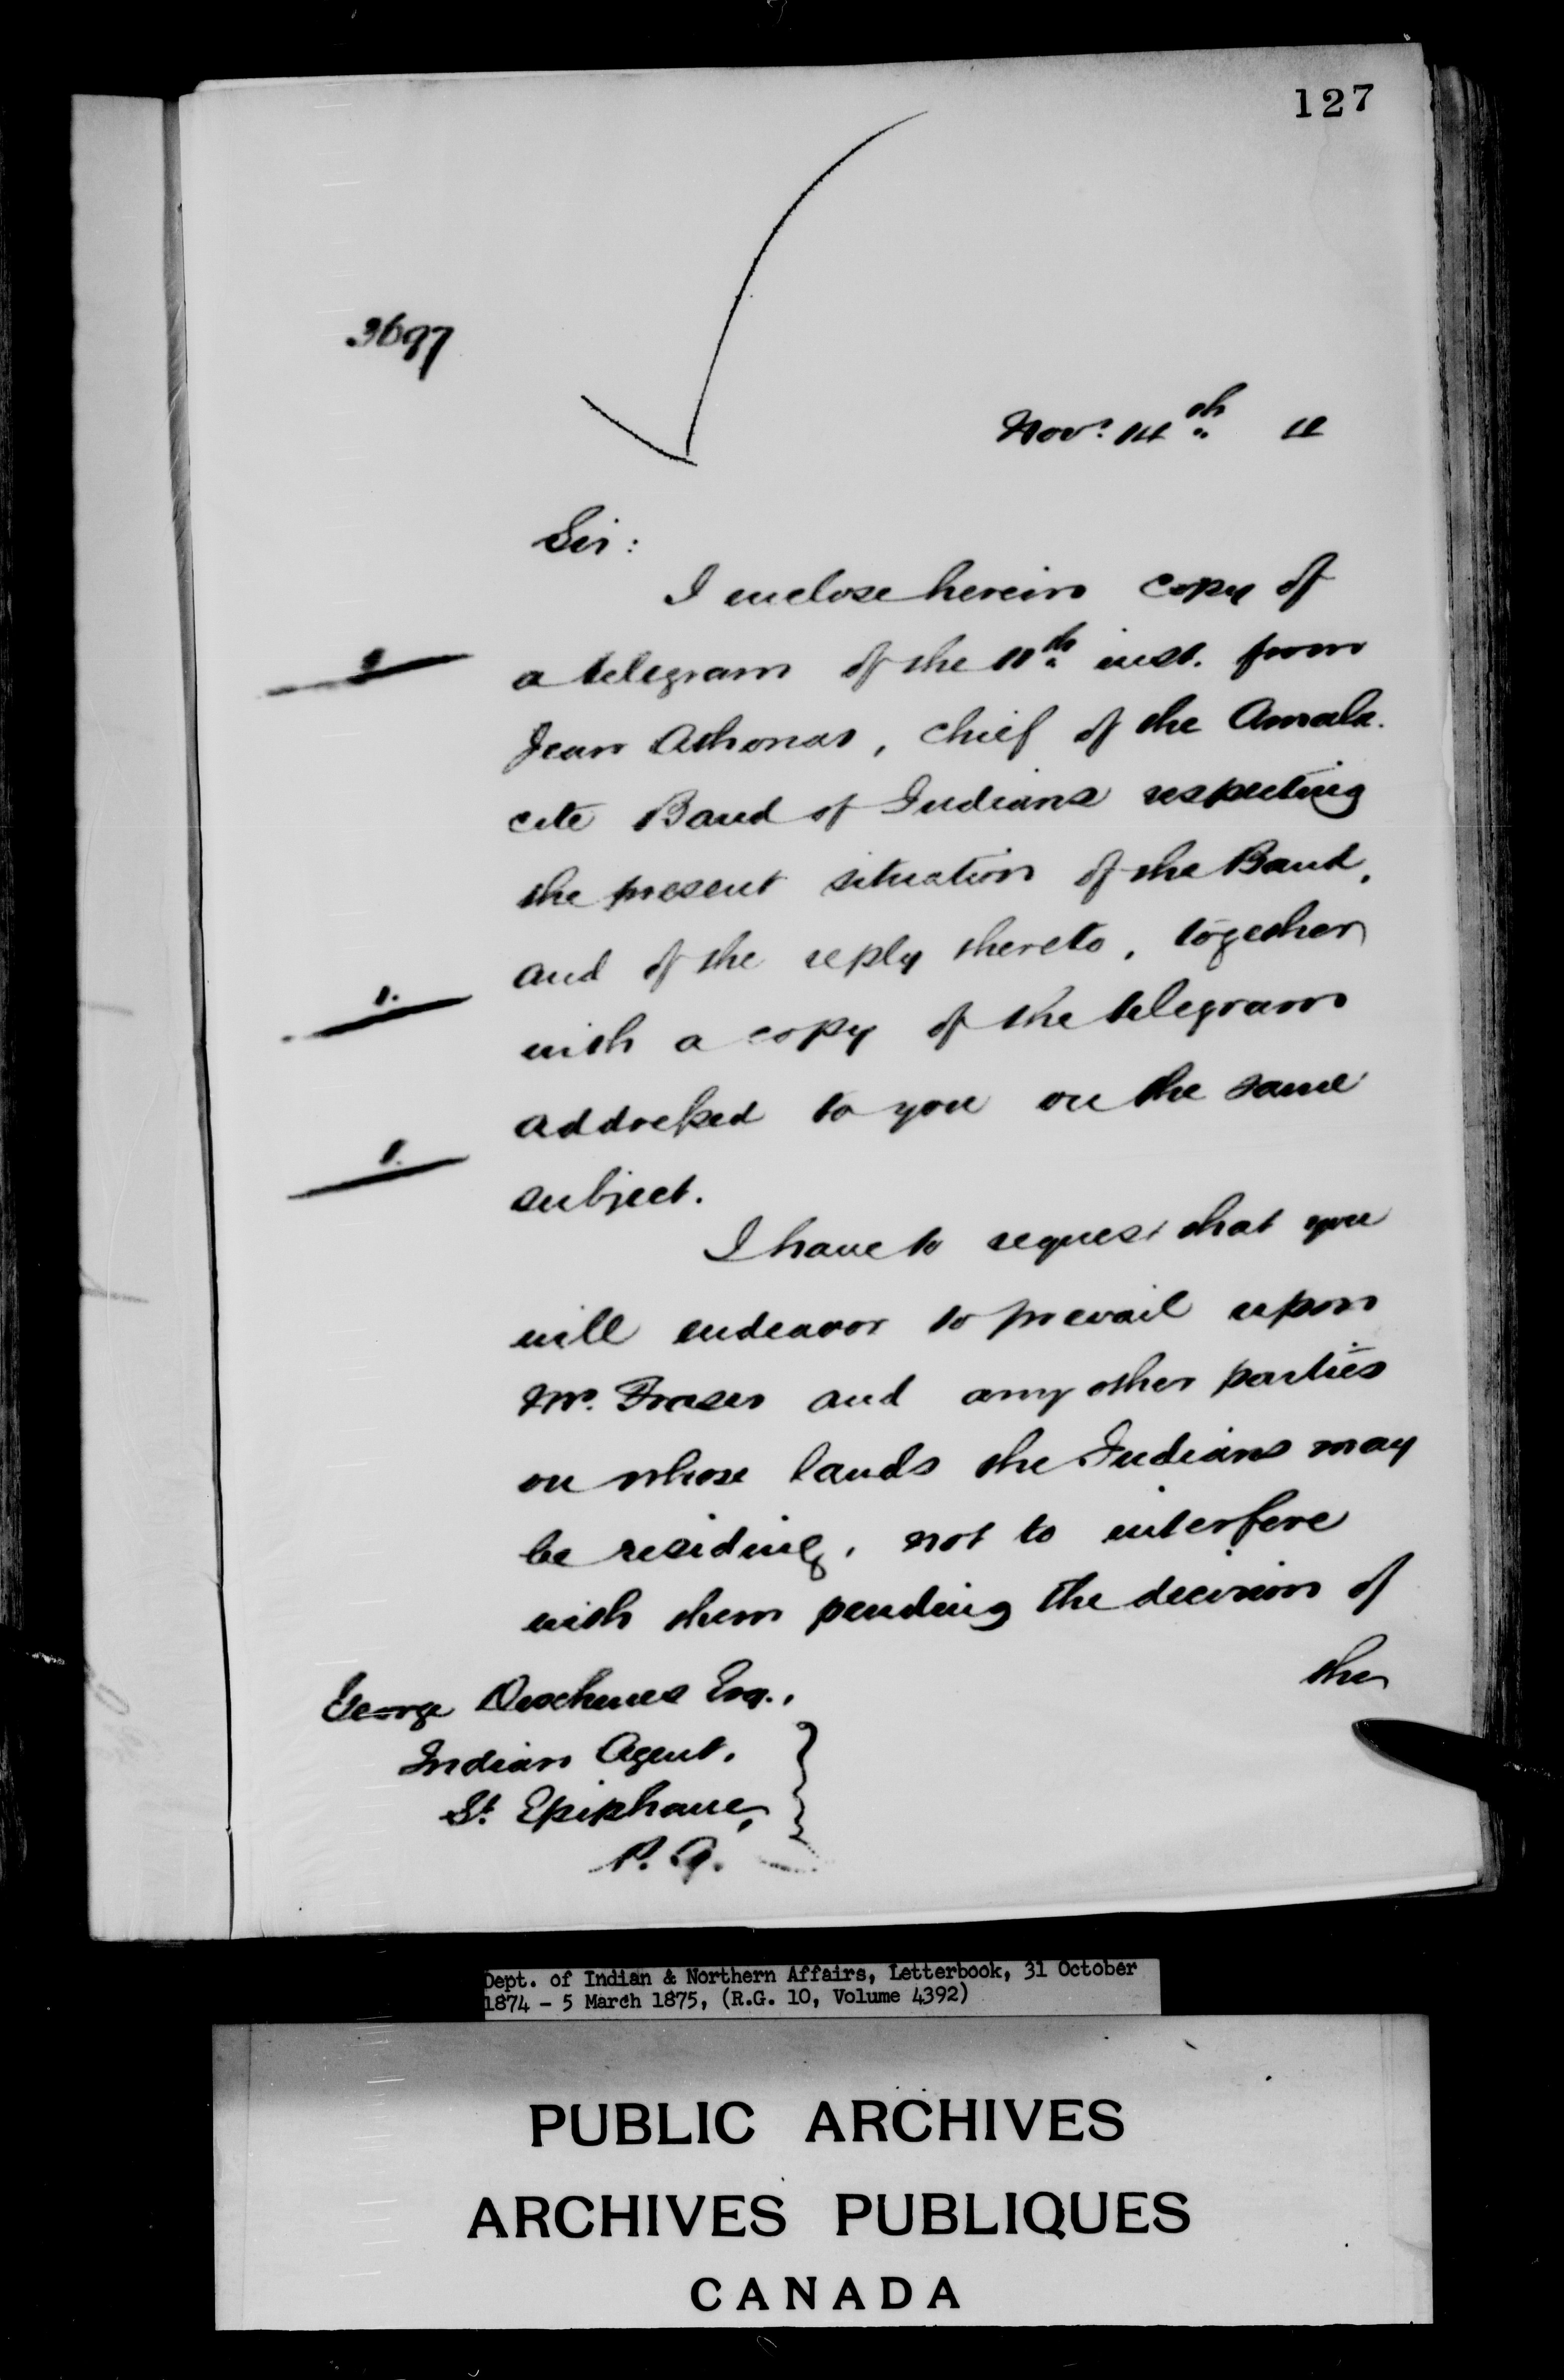 127
3697
Nov. 14th
Sir:
I enclose herein copy of
a telegram of the 11th inst. from
Jean Athonas, Chief of the Amala-
cite Band of Indians respecting
the present situation of the Band,
and of the reply thereto, together
with a copy of the telegram
addressed to you on the same
subject.
I have to request that you
will endeavor to prevail upon
Mr. Fraser and any other parties
on whose lands the Indians may
be residing, not to interfere
with them pending the decision of
the
George Deschenes Esq.,
Indian Agent,
St. Epiphane,
P. Q.
Dept. of Indian & Northern Affairs, Letterbook, 31 October
1874 - 5 March 1875, (R.G. 10, Volume 4392)
PUBLIC ARCHIVES
ARCHIVES PUBLIQUES
CANADA